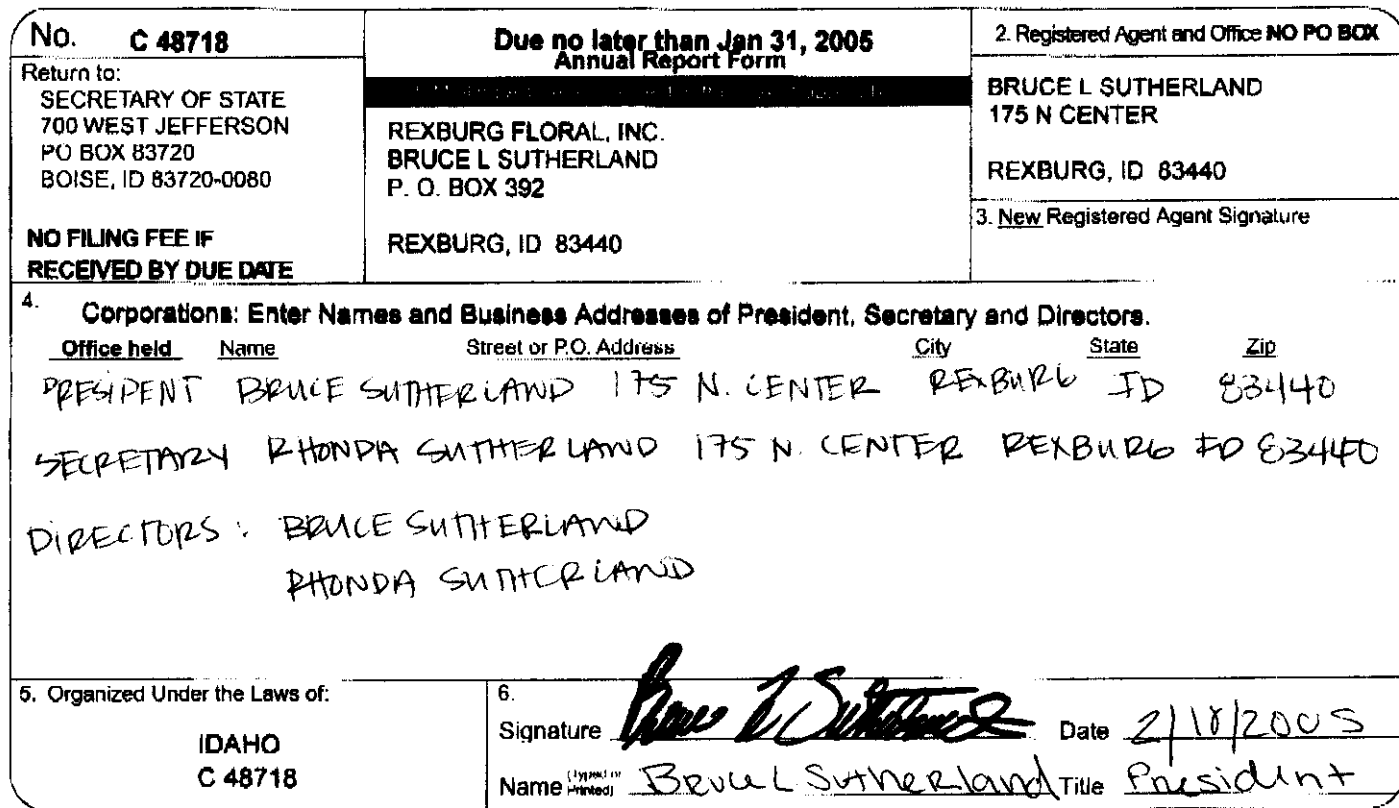 No. C 48718
Return to:
SECRETARY OF STATE
700 WEST JEFFERSON
PO BOX 83720
BOISE, ID 83720-0080
NO FILING FEE IF
RECEIVED BY DUE DATE
Due no later than Jan 31, 2005
Annual Report Form
REXBURG FLORAL, INC.
BRUCE L SUTHERLAND
P. O. BOX 392
REXBURG, ID 83440
2. Registered Agent and Office NO PO BOX
BRUCE L SUTHERLAND
175 N CENTER
REXBURG, ID 83440
3. New Registered Agent Signature
4. Corporations: Enter Names and Business Addresses of President, Secretary and Directors.
Office held Name Street or P.O. Address City State Zip
PRESIDENT BRUCE SUTHERLAND 175 N. CENTER REXBURG ID 83440
SECRETARY RHONDA SUTHERLAND 175 N. CENTER REXBURG ID 83440
DIRECTORS: BRUCE SUTHERLAND
RHONDA SUTHERLAND
5. Organized Under the Laws of:
IDAHO
C 48718
6.
Signature Bruce L Sutherland Date 2/18/2005
Name (Typed or Printed) Bruce L Sutherland Title President